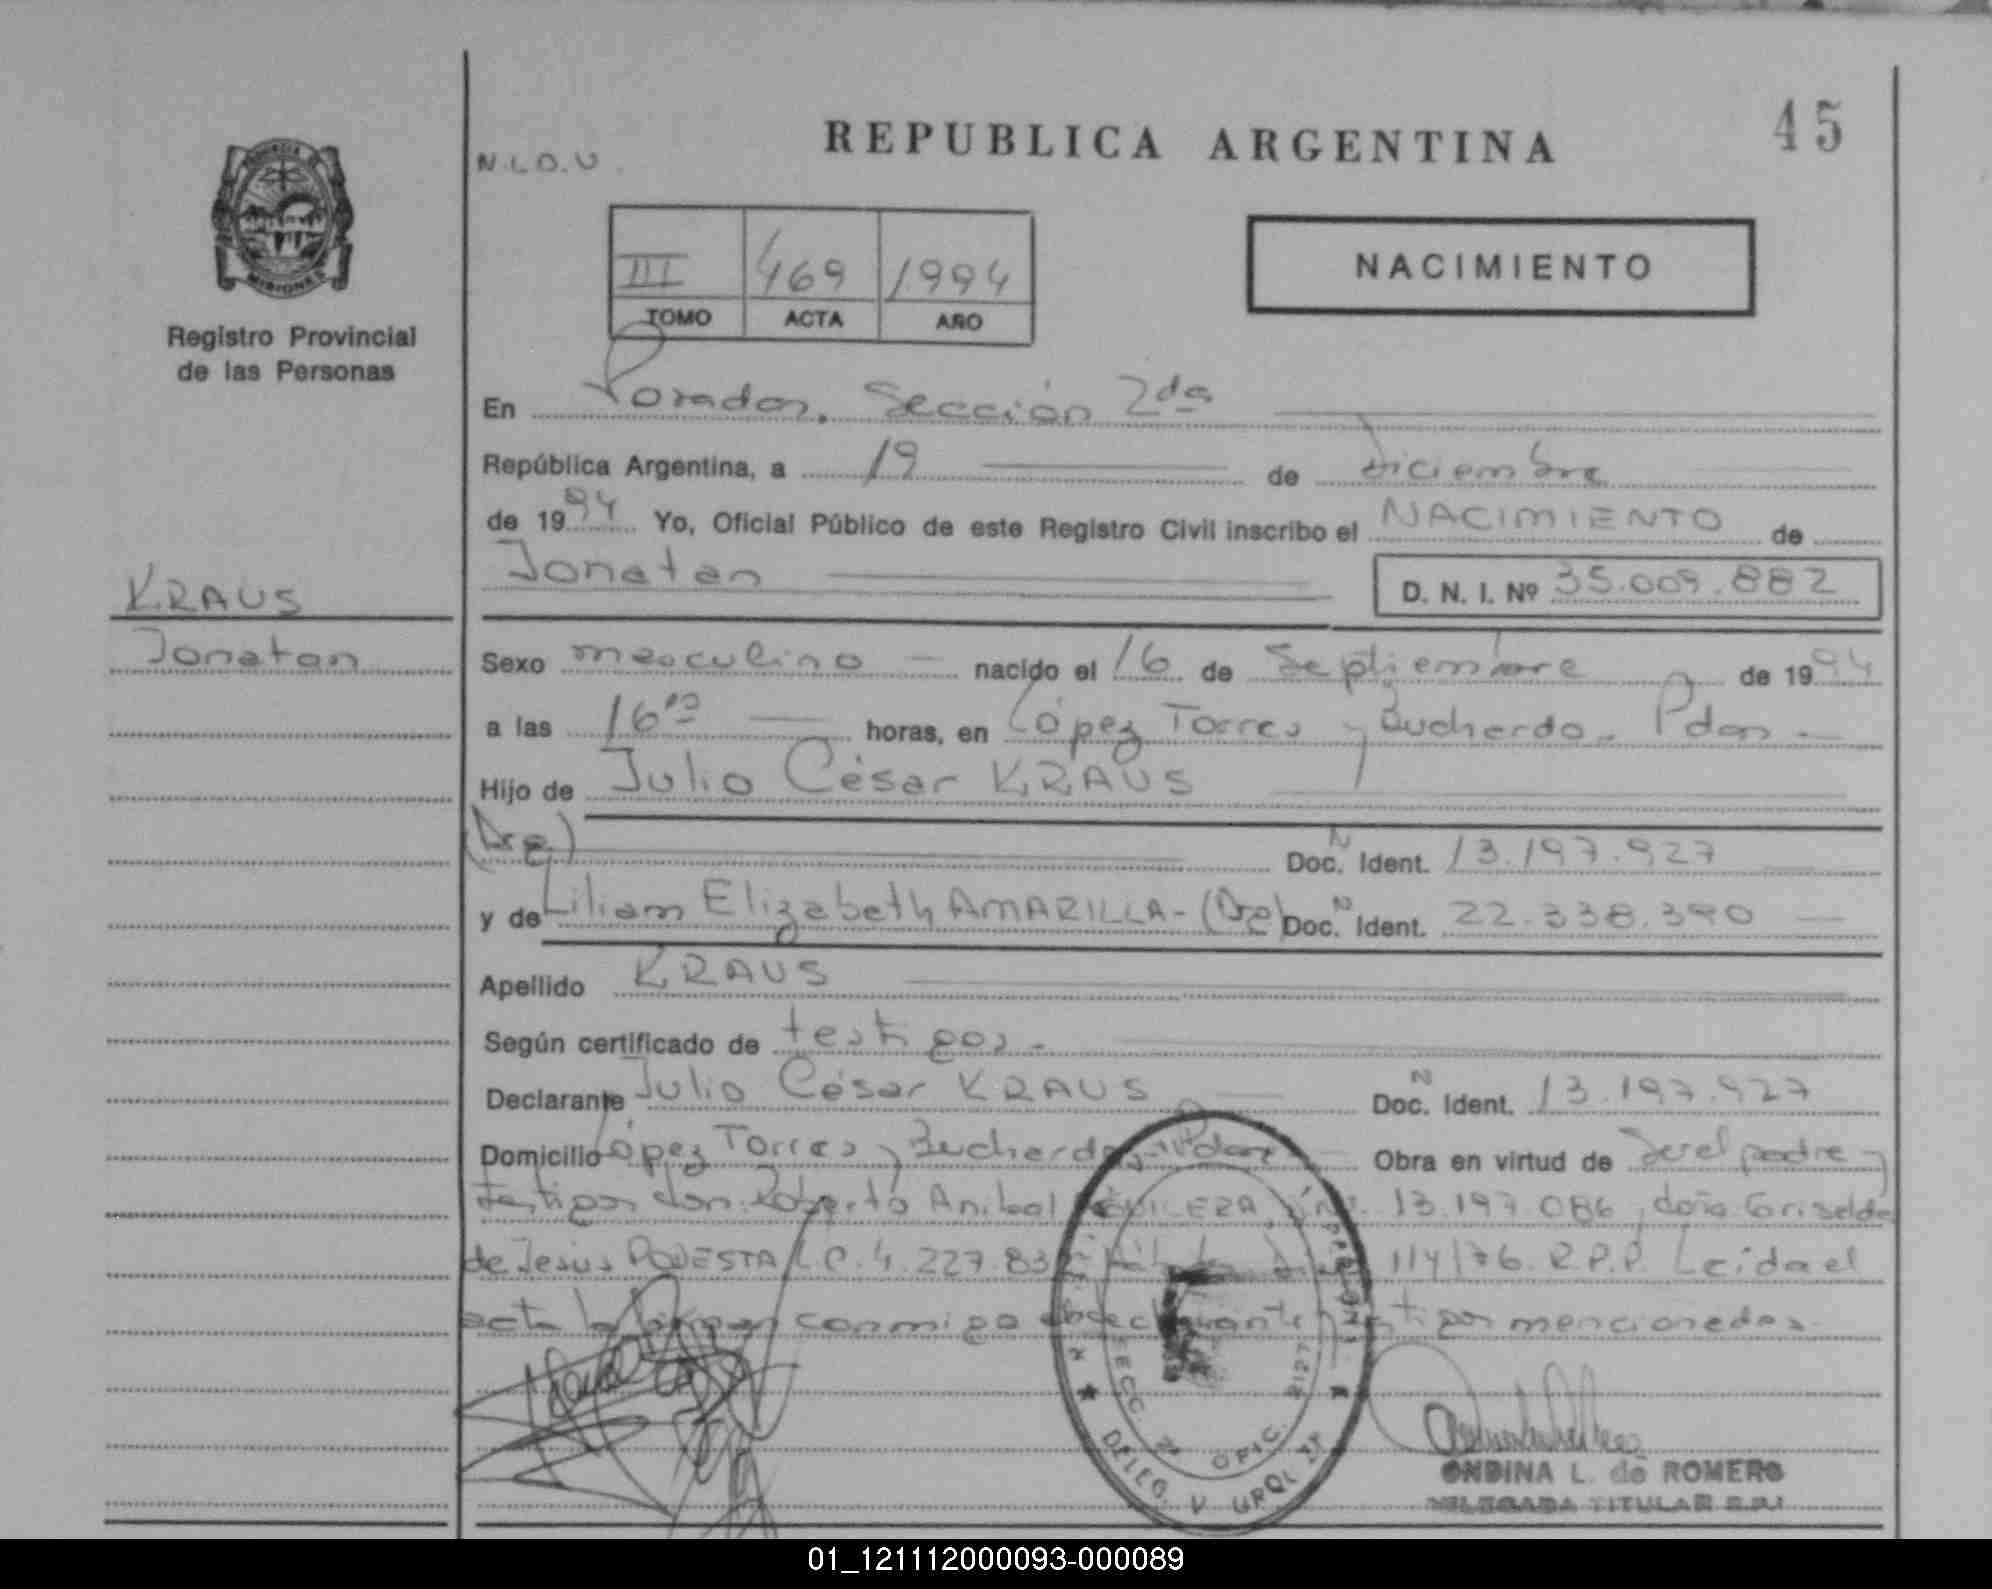 REPUBLICA ARGENTINA
45
N.L.O.V.
PROVINCIA DE MISIONES
Registro Provincial
de las Personas
III 469 1994
TOMO ACTA AÑO
NACIMIENTO
En Posadas, Sección 2da
República Argentina, a 19 de diciembre
de 1994 Yo, Oficial Público de este Registro Civil inscribo el NACIMIENTO de
Jonatan D. N. I. Nº 35.009.882
KRAUS
Jonatan
Sexo masculino nacido el 16 de Septiembre de 1994
a las 16 horas, en López Torres y Bucherdo. Pdas
Hijo de Julio César KRAUS
(Arg) Doc. N Ident. 13.197.927
y de Liliam Elizabeth AMARILLA - (Arg) Doc. N Ident. 22.338.390
Apellido KRAUS
Según certificado de testigos.
Declarante Julio César KRAUS Doc. N Ident. 13.197.927
Domicilio López Torres y Bucherdo, Pdas Obra en virtud de Ser el padre y
testigos don: Roberto Anibal 13.197.086, doña Griselda
de Jesús L.C. 4.227.83 114/76. R.P.P. Leída el
acta la firman conmigo el declarante y testigos mencionados.
SECC. 2ª OFIC. 2127
DELEG. V. URQUIZA
ONDINA L. de ROMERO
DELEGADA TITULAR
01_121112000093-000089